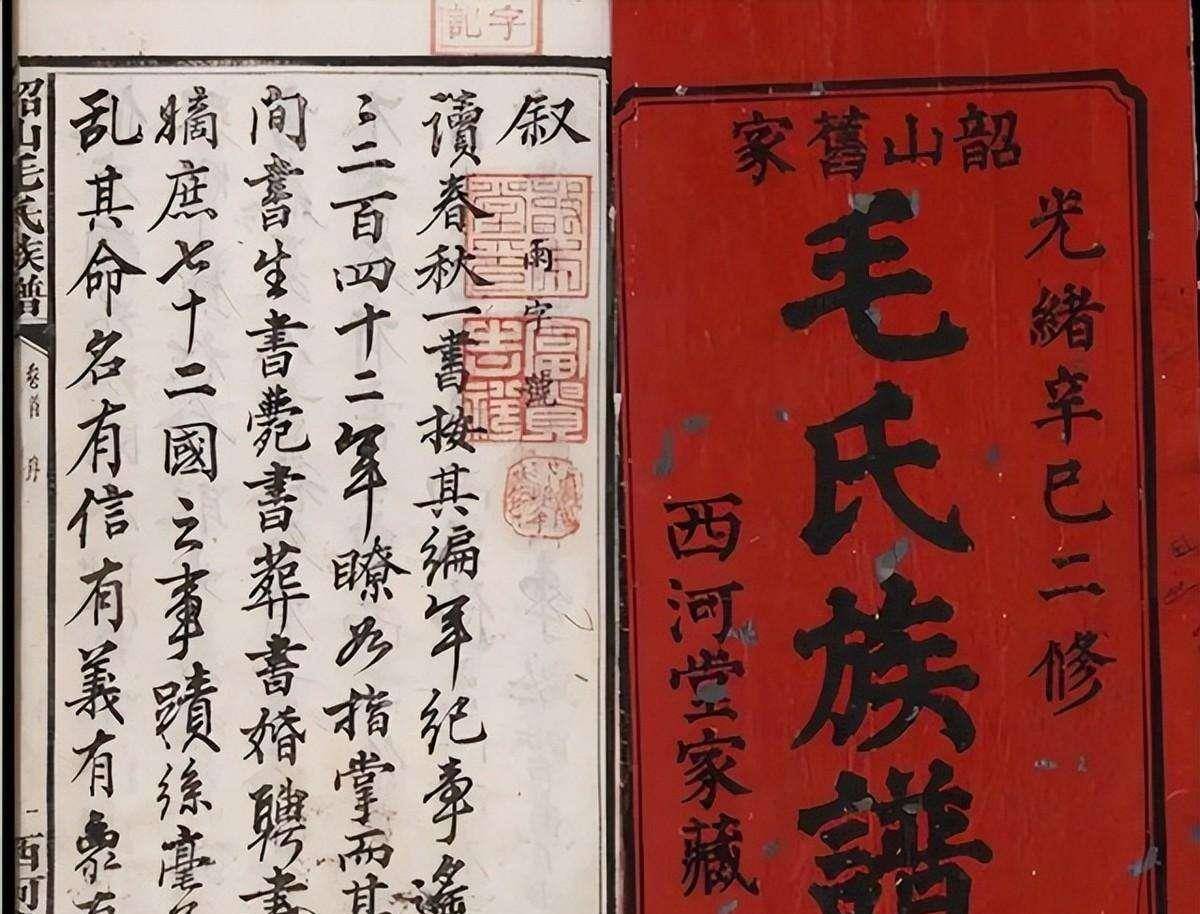 韶山舊家
光緒辛巳二修
毛氏族譜
西河堂家藏
字
記
叙
雨字號
富貴
吉祥
讀春秋一書按其編年紀事遙
〻二百四十二年瞭如指掌而其
间書生書薨書葬書婚聘書
嫡庶七十二國之事蹟絲毫
乱其命名有信有義有象有
韶山毛氏族譜
卷首
西河